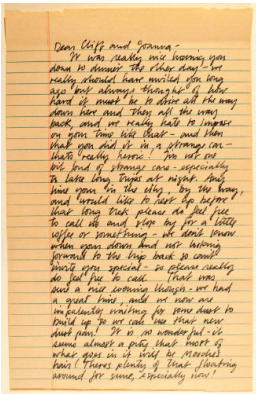 Dear Cliff and Joanna -
It was really nice having you
down to dinner the other day - we
really should have invited you long
ago but always thought of how
hard it must be to drive all the way
down here and then all the way
back, and we really hate to impose
on your time like that - and then
that you did it in a strange car -
that's really heroic! I'm not one
bit fond of strange cars - especially
in late long drives at night. Any
time you're in the city, by the way,
and would like to rest up before
that long trek please do feel free
to call us and stop by for a little
coffee or something. We don't know
when you're down and not looking
forward to the trip back so can't
invite you special - so please really
do feel free to call. That was
such a nice evening though - we had
a great time, and we now are
impatiently waiting for some dust to
build up so we can use that new
dust pan! It is so wonderful - it
seems almost a pity that most of
what goes in it will be
hair! There's plenty of that floating
around, for sure, especially now!